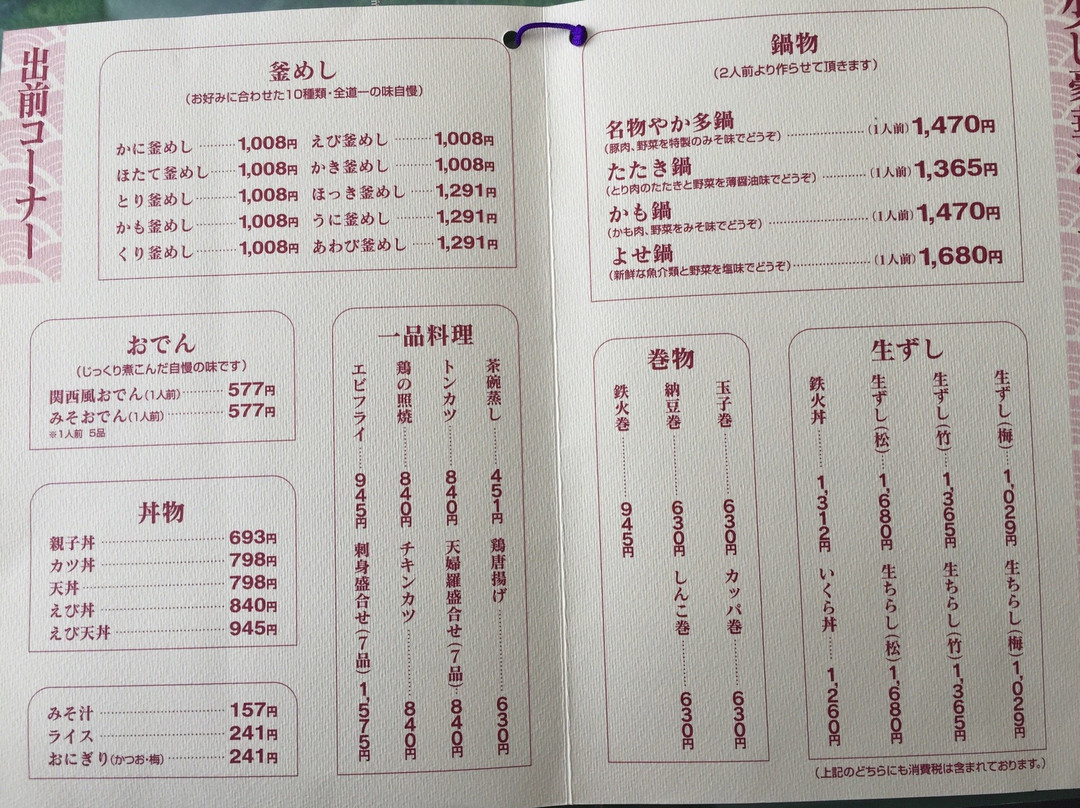 出前コーナー
釜めし
(お好みに合わせた10種類・全道一の味自慢)
かに釜めし 1,008円
ほたて釜めし 1,008円
とり釜めし 1,008円
かも釜めし 1,008円
くり釜めし 1,008円
えび釜めし 1,008円
かき釜めし 1,008円
ほっき釜めし 1,291円
うに釜めし 1,291円
あわび釜めし 1,291円
おでん
(じっくり煮こんだ自慢の味です)
関西風おでん(1人前) 577円
みそおでん(1人前) 577円
※1人前 5品
丼物
親子丼 693円
カツ丼 798円
天丼 798円
えび丼 840円
えび天丼 945円
みそ汁 157円
ライス 241円
おにぎり(かつお・梅) 241円
一品料理
茶碗蒸し 451円
鶏唐揚げ 630円
トンカツ 840円
天婦羅盛合せ(7品) 840円
鶏の照焼 840円
チキンカツ 840円
エビフライ 945円
刺身盛合せ(7品) 1,575円
鍋物
(2人前より作らせて頂きます)
名物やか多鍋 (1人前)1,470円
(豚肉、野菜を特製のみそ味でどうぞ)
たたき鍋 (1人前)1,365円
(とり肉のたたきと野菜を薄醤油味でどうぞ)
かも鍋 (1人前)1,470円
(かも肉、野菜をみそ味でどうぞ)
よせ鍋 (1人前)1,680円
(新鮮な魚介類と野菜を塩味でどうぞ)
巻物
玉子巻 630円
カッパ巻 630円
納豆巻 630円
しんこ巻 630円
鉄火巻 945円
生ずし
生ずし(梅) 1,029円
生ちらし(梅) 1,029円
生ずし(竹) 1,365円
生ちらし(竹) 1,365円
生ずし(松) 1,680円
生ちらし(松) 1,680円
鉄火丼 1,312円
いくら丼 1,260円
(上記のどちらにも消費税は含まれております。)